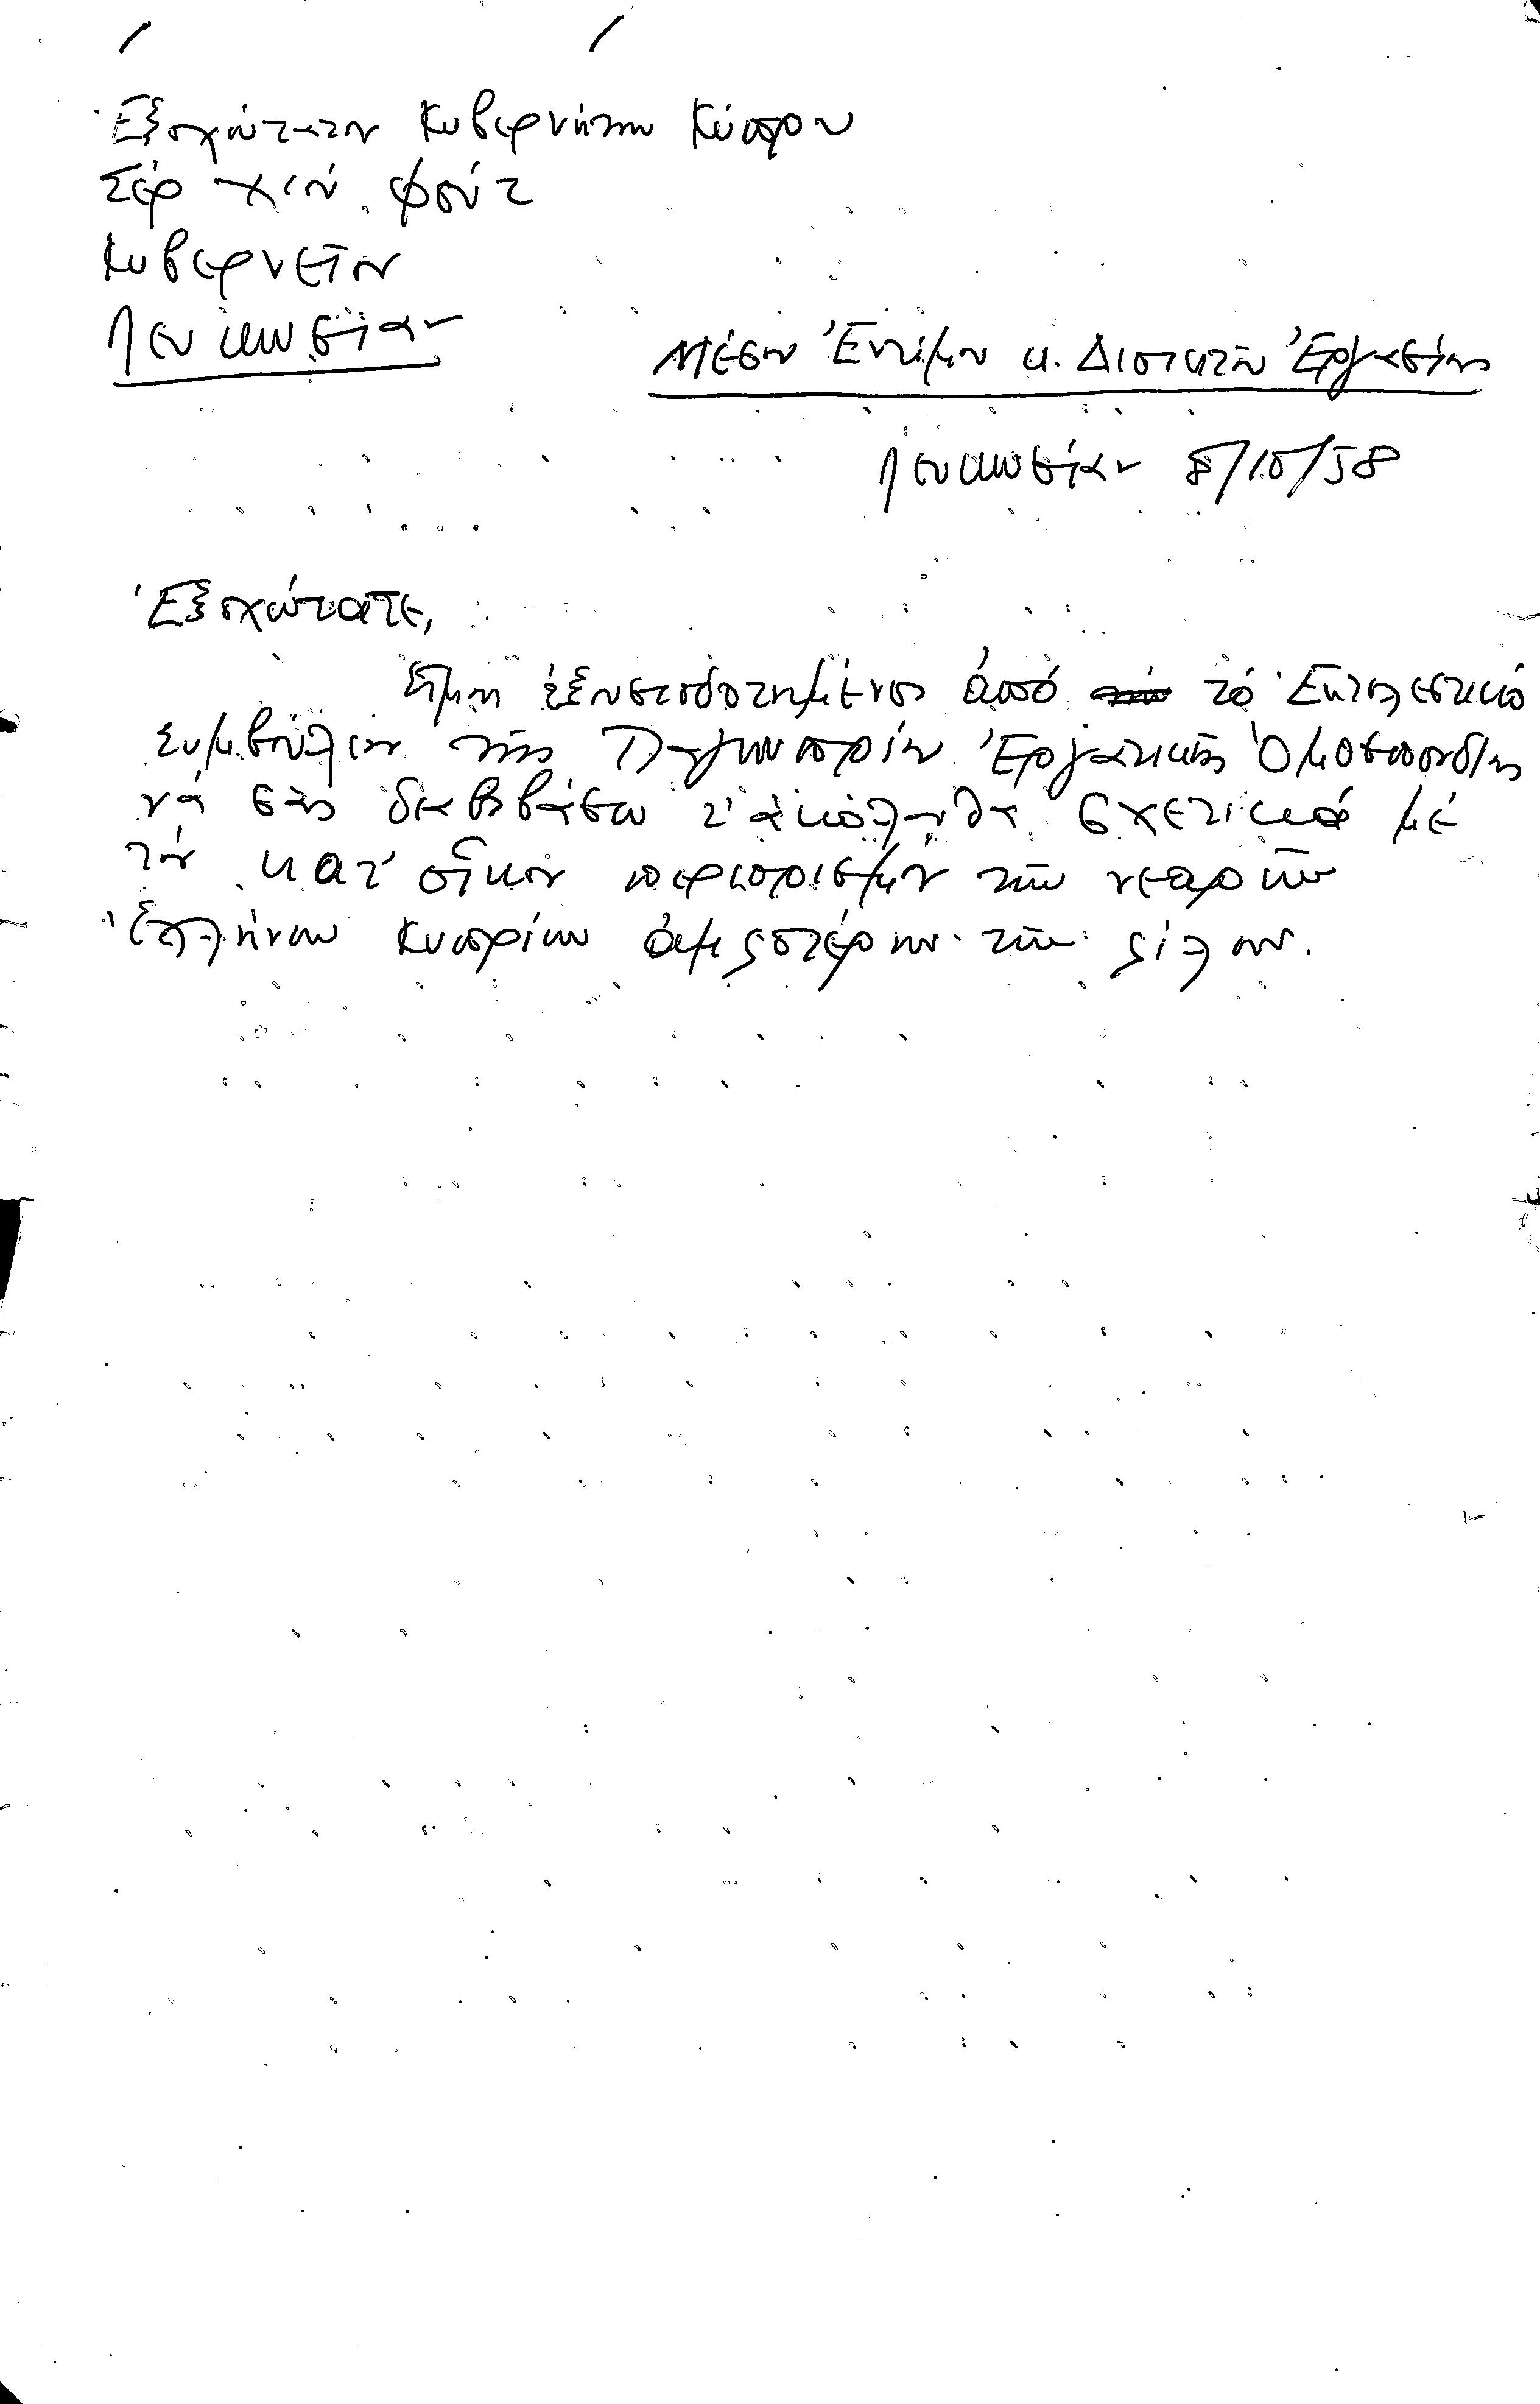 Ἐξοχώτατον Κυβερνήτην Κύπρου
Σέρ Χιού Φούτ
Κυβερνεῖον
Λευκωσίαν
Μέσον Ἐντίμου κ. Διοικητοῦ Ἐργασίας
Λευκωσίαν 8/10/58
Ἐξοχώτατε,
Εἶμαι ἐξουσιοδοτημένος ἀπό τό Ἐκτελεστικό
Συμβούλιον τῆς Παγκυπρίου Ἐργατικῆς Ὁμοσπονδίας
νά σᾶς διαβιβάσω τ' ἀκόλουθα σχετικά μέ
τόν κατ' οἶκον περιορισμόν τῶν νεαρῶν
Ἑλλήνων Κυπρίων ἀμφοτέρων τῶν φύλων.